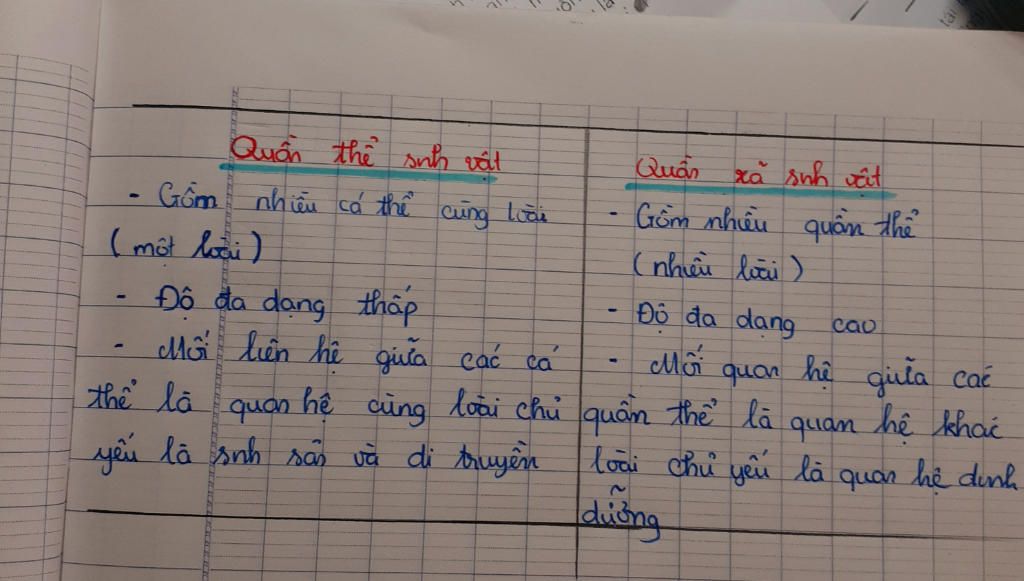 Quần thể snh vật
- Gồm nhiều cá thể cùng loài
(một loài)
- Độ đa dạng thấp
- Mối liên hệ giữa các cá
thể là quan hệ cùng loài chủ
yếu là snh sản và di truyền
Quần xã snh vật
- Gồm nhiều quần thể
(nhiều loài)
- Độ đa dạng cao
- Mối quan hệ giữa các
quần thể là quan hệ khác
loài chủ yếu là quan hệ dinh
dưỡng